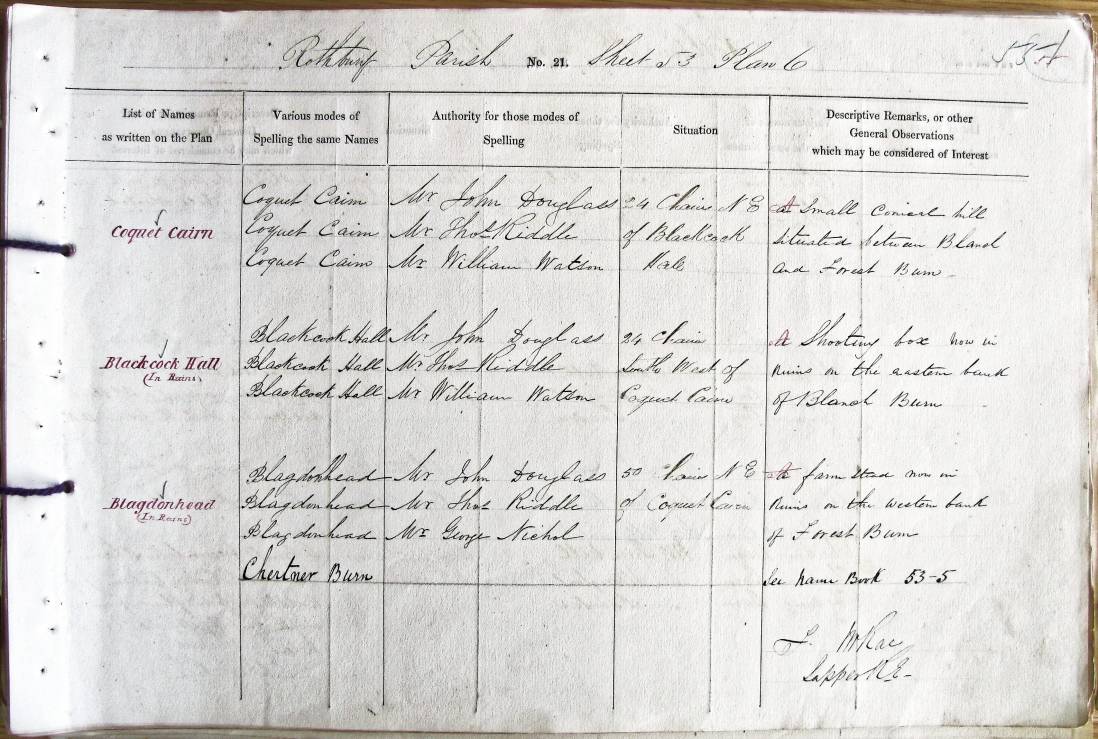 Rothbury Parish No. 21. Sheet 53 Plan 6
List of Names as written on the Plan
Various modes of Spelling the same Names
Authority for those modes of Spelling
Situation
Descriptive Remarks, or other General Observations which may be considered of Interest
Coquet Cairn
Coquet Cairn Mr John Douglass 24 Chains N E A Small Conical hill
Coquet Cairn Mr Thos Riddle of Blackcock situated between Bland
Coquet Cairn Mr William Watson Hall and Forest Burn
Blackcock Hall
(In Ruins)
Blackcock Hall Mr John Douglass 24 Chains A Shooting box now in
Blackcock Hall Mr Thos Riddle South West of ruins on the eastern bank
Blackcock Hall Mr William Watson Coquet Cairn of Bland Burn
Blagdonhead
(In Ruins)
Blagdonhead Mr John Douglass 50 Chains N E A farm stead now in
Blagdonhead Mr Thos Riddle of Coquet Cairn ruins on the western bank
Blagdonhead Mr George Nichol of Forest Burn
Chertner Burn See Name Book 53-5
McRae
Sapper R.E.